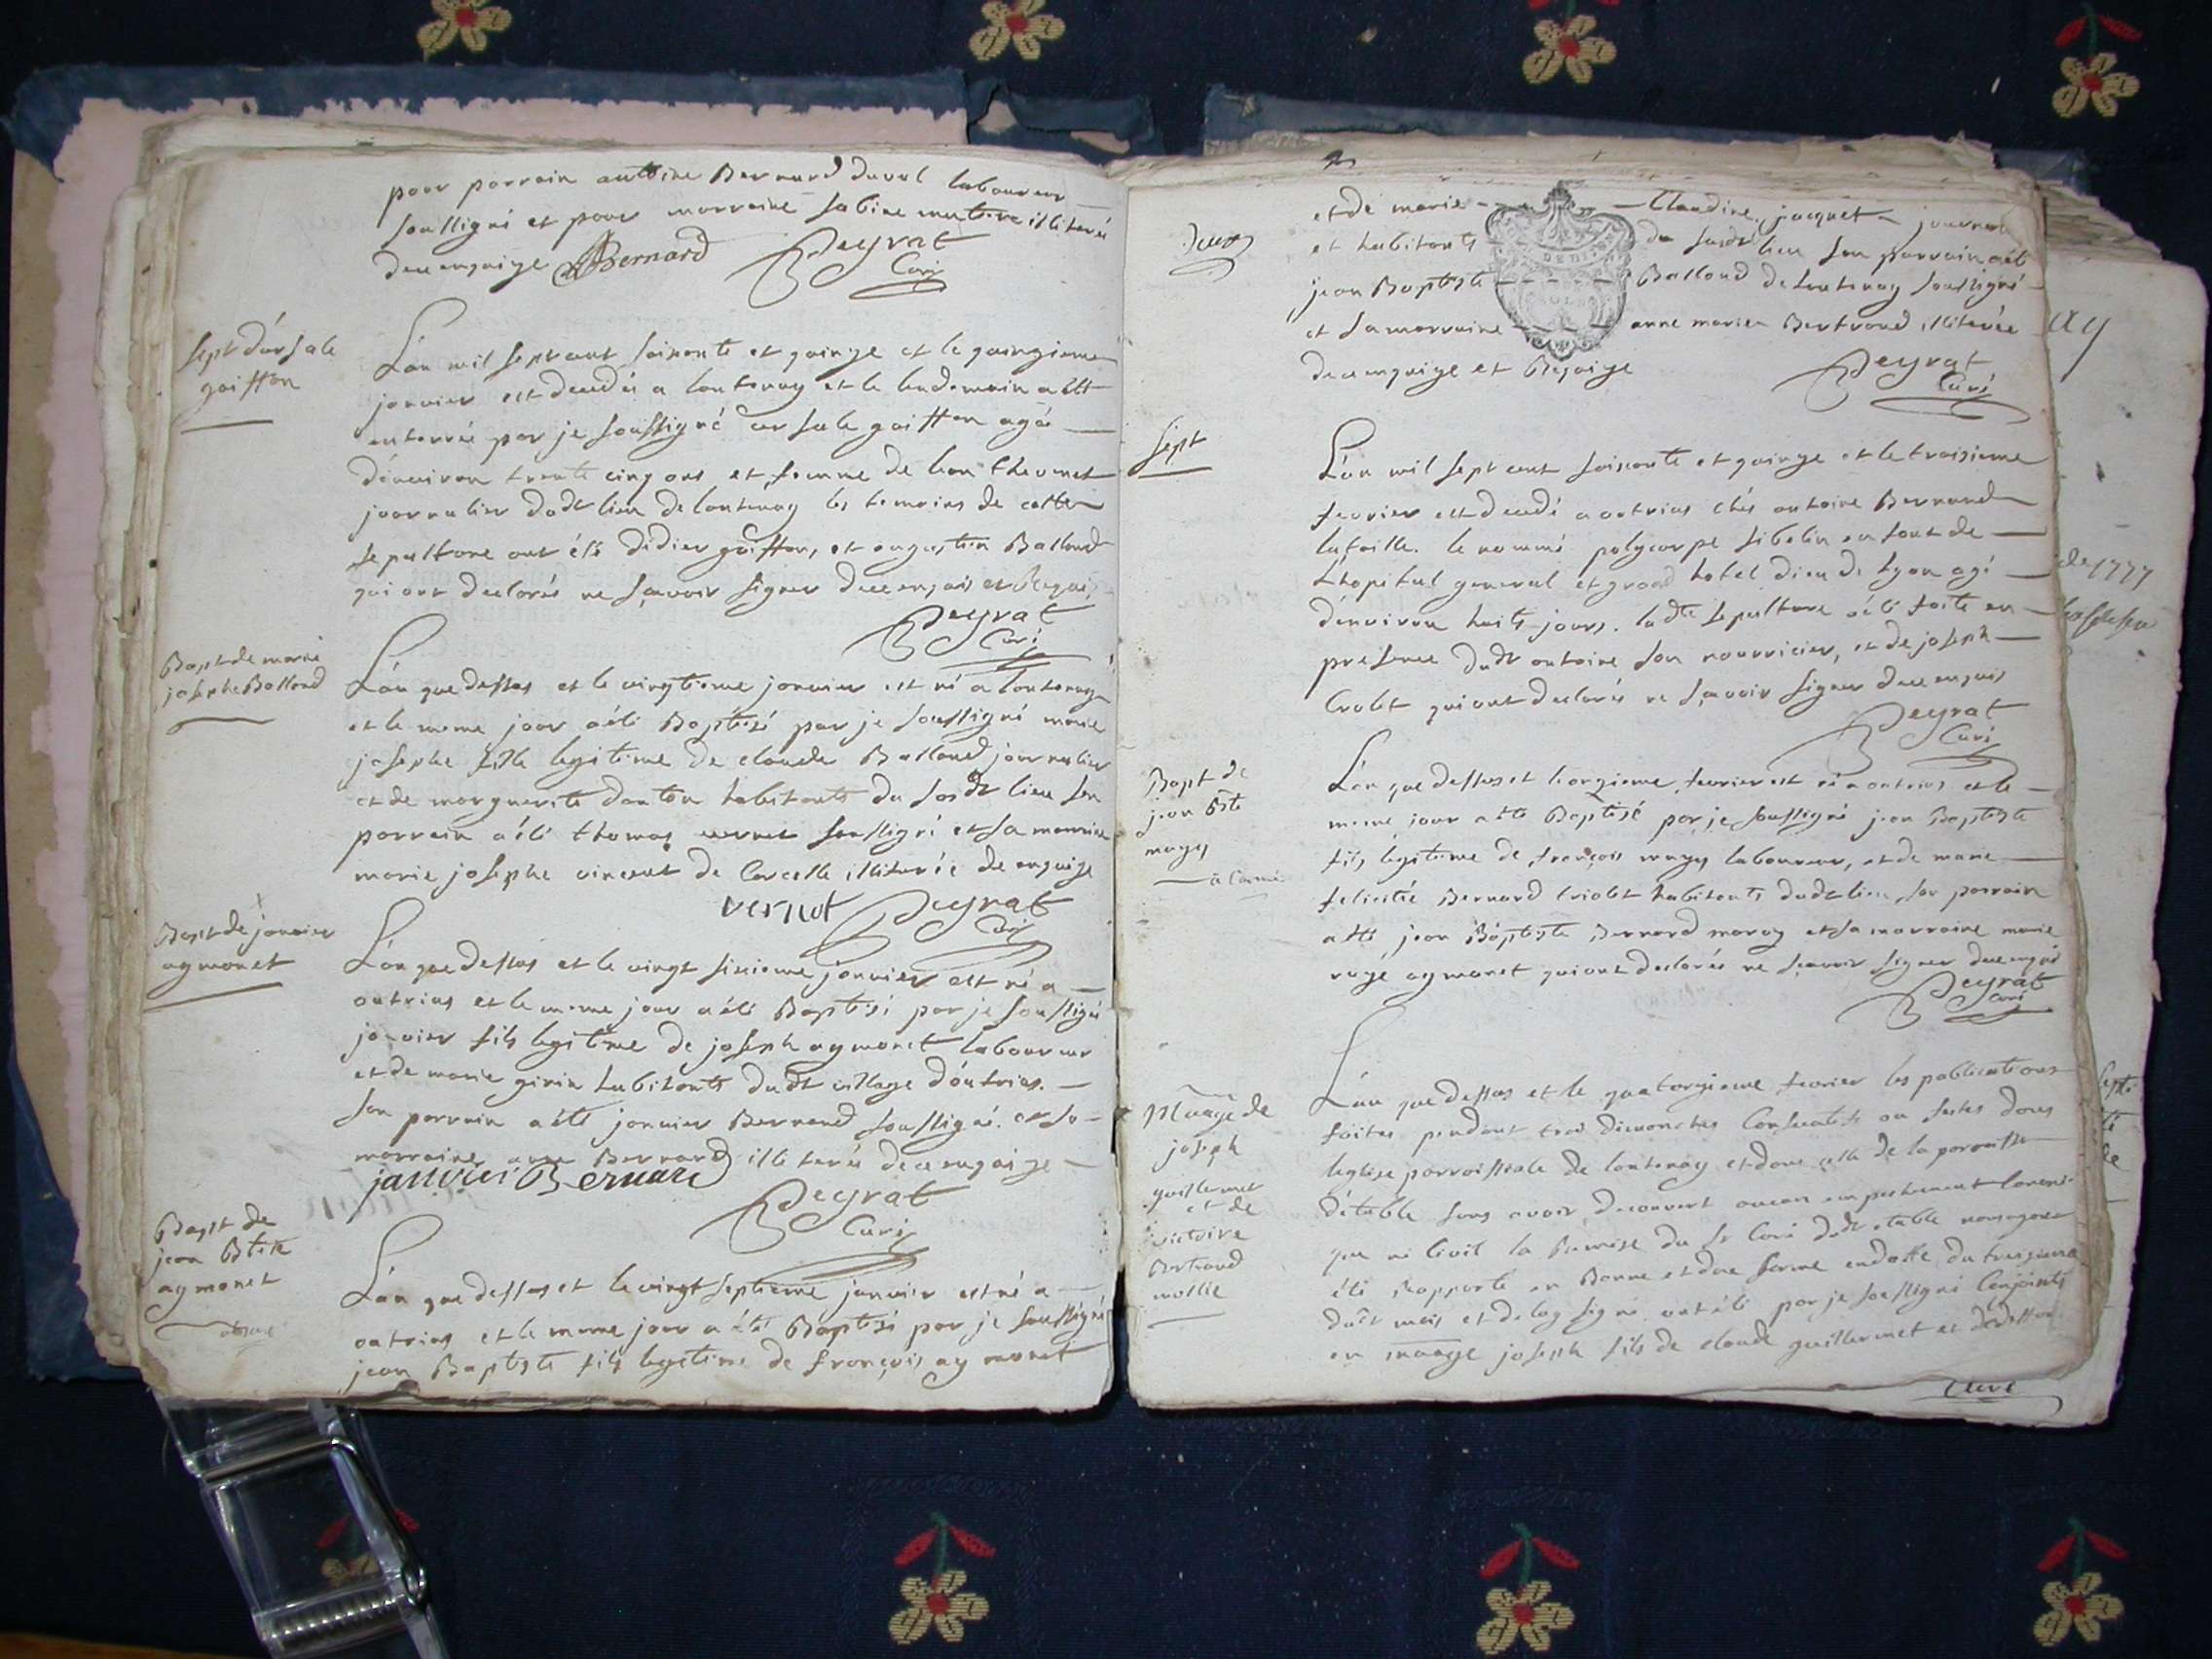 pour parrain anthoine Bernard duval laboureur
soussigné et pour marraine sabine illiterée
de ce enquise Bernard Peyrat
Curé
sept d'ursule
goiffon
L'an mil sept cent soixante et quinze et le quinzieme
janvier est decedée a lantenay et le lendemain a été
enterrée par je soussigné ursule goiffon agée
d'environ trente cinq ans et femme de leon thevenet
journalier dudt lieu de lantenay les temoins de cette
sepulture ont été didier goiffon, et augustin Balland
qui ont declarés ne sçavoir signer de ce enquis et Requis
Peyrat
Curé
Bapt de marie
josephe Balland
L'an que dessus et le vingtieme janvier est né a lantenay
et le meme jour a été Baptisé par je soussigné marie
josephe fille legitime de claude Balland journalier
et de marguerite habitants du susdt lieu son
parrain a été thomas vernet soussigné et sa marraine
marie josephe vincent de Corcelle illiterée de enquise
vernet Peyrat
Curé
Bapt de janvier
aymonet
L'an que dessus et le vingt sixieme janvier est né a
outrias et le meme jour a été Baptisé par je soussigné
janvier fils legitime de joseph aymonet laboureur
et de marie girin habitants dudt village d'outrias.
son parrain a été janvier Bernard soussigné. et sa
marraine anne Bernard illiterée de ce enquise
janvier Bernard
Peyrat
Curé
Bapt de
jean Bte
aymonet
L'an que dessus et le vingt septieme janvier est né a
outrias et le meme jour a été Baptisé par je soussigné
jean Baptiste fils legitime de françois aymonet
deux
et de marie Claudine jacquet
et habitants du susdt lieu son parrain a été
jean Baptiste Balland de lantenay soussigné
et sa marraine anne marie Bertrand illiterée
de ce enquise et Requise
Peyrat
Curé
sept
L'an mil sept cent soixante et quinze et le troisieme
fevrier est decedé a outrias chés antoine Bernard
lataille. le nommé polycarpe sibelin enfant de
L'hopital general et grand hotel dieu de Lyon agé
d'environ huits jours. ladte sepulture a été faite en
presence dudt antoine son nourricier, et de joseph
Crolet qui ont declarés ne sçavoir signer de ce enquis
Peyrat
Curé
Bapt de
jean Bte
L'an que dessus et le onzieme fevrier est né a outrias et le
meme jour a été Baptisé par je soussigné jean Baptiste
fils legitime de françois laboureur, et de marie
felicité Bernard habitants dudt lieu son parrain
a été jean Baptiste Bernard et sa marraine marie
aymonet qui ont declarés ne sçavoir signer de ce enquis
Peyrat
Curé
Mariage de
joseph
guillermet
et de
victoire
Bertrand
mollie
L'an que dessus et le quatorzieme fevrier les publications
faites pendant trois dimanches Consecutifs ou festes dans
leglise parroissiale de lantenay et dans celle de la paroisse
d'étable sans avoir decouvert aucun empechement Canoni-
que ni Civil la Remise du sr Curé dudt étable nous ayant
été Rapporté en Bonne et due forme en datte du treizieme
dudt mois et de luy signé ont été par je soussigné Conjoints
en mariage joseph fils de claude guillermet et
Curé
de 1777